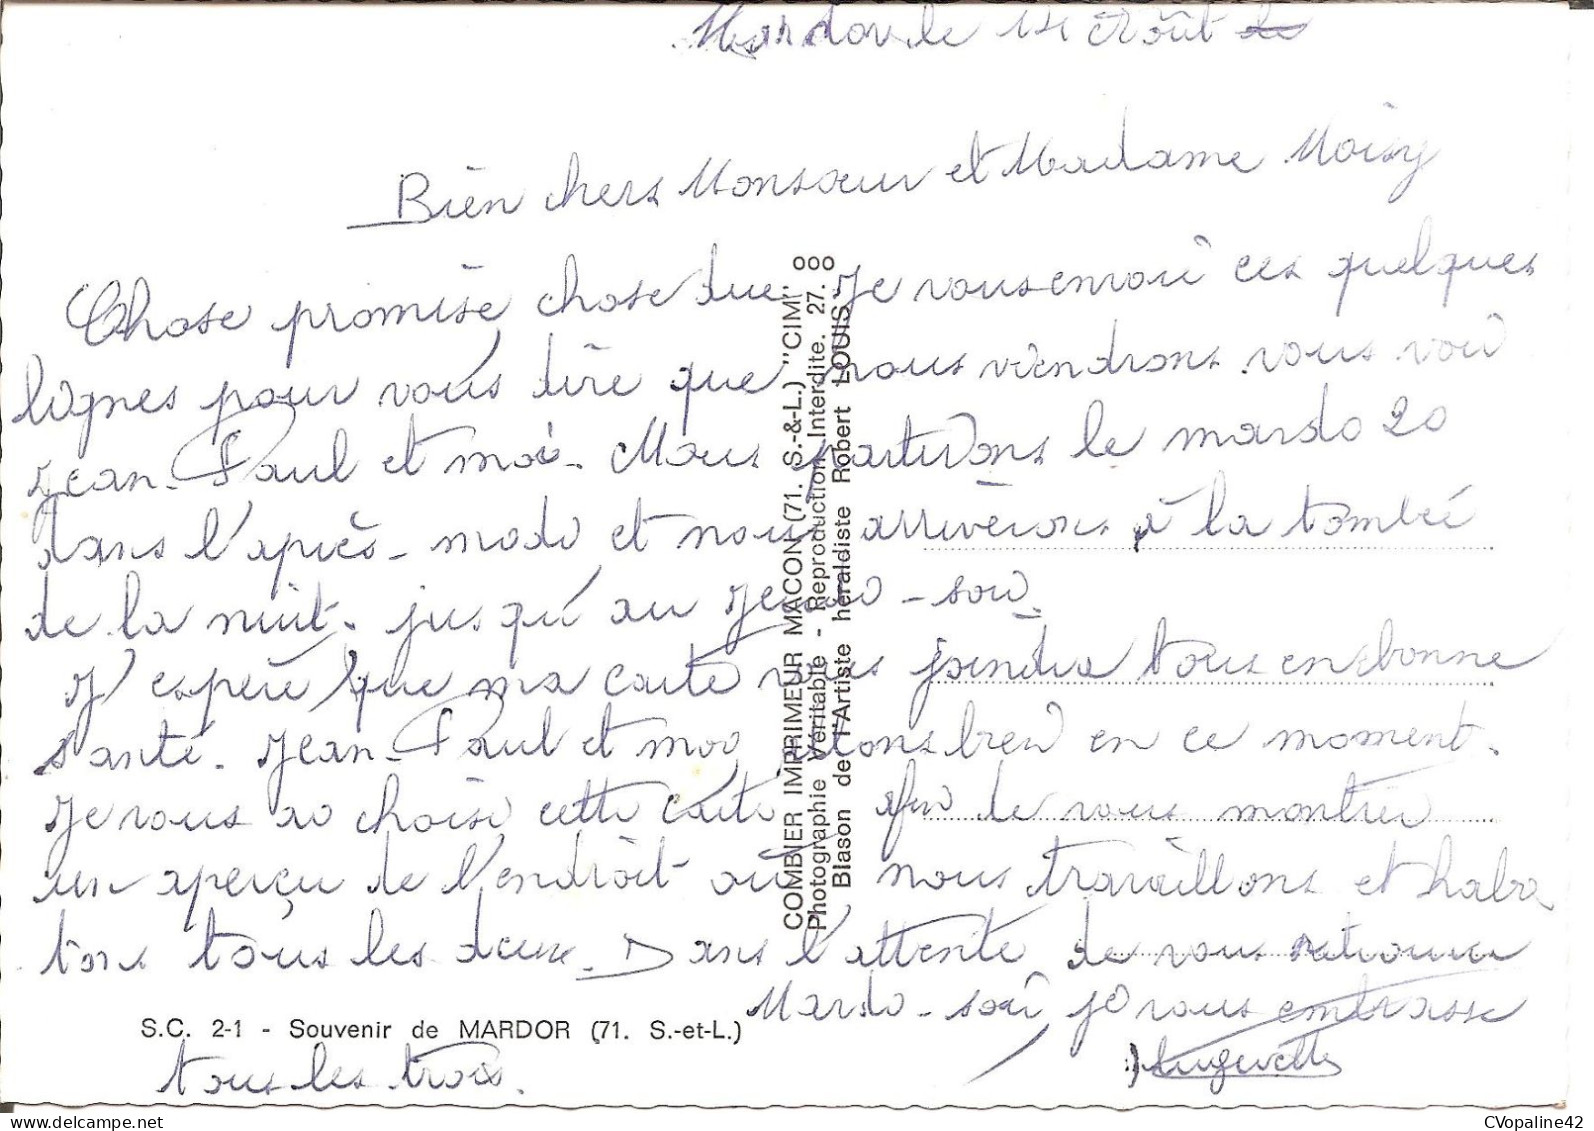 Mardor le 14 Août
Bien chers Monsieur et Madame Moisy
Chose promise chose due. Je vous envoie ces quelques
lignes pour vous dire que nous viendrons vous voir
Jean-Paul et moi. Nous partirons le mardi 20
dans l'après-midi et nous arriverons à la tombée
de la nuit. jusqu'au Jeudi-soir.
J'espère que ma carte vous joindra tous en bonne
santé. Jean-Paul et moi, allons bien en ce moment.
Je vous ai choisi cette carte, afin de vous montrer
un aperçu de l'endroit où nous travaillons et habi
tons tous les deux. Dans l'attente de vous retrouver
Mardi-soir je vous embrasse
tous les trois.
S.C. 2-1 - Souvenir de MARDOR (71. S.-et-L.)
COMBIER IMPRIMEUR MACON (71. S.-&-L.) "CIM"
Photographie Véritable - Reproduction Interdite. 27.
Blason de l'Artiste héraldiste Robert LOUIS
ooo
CVopaline42